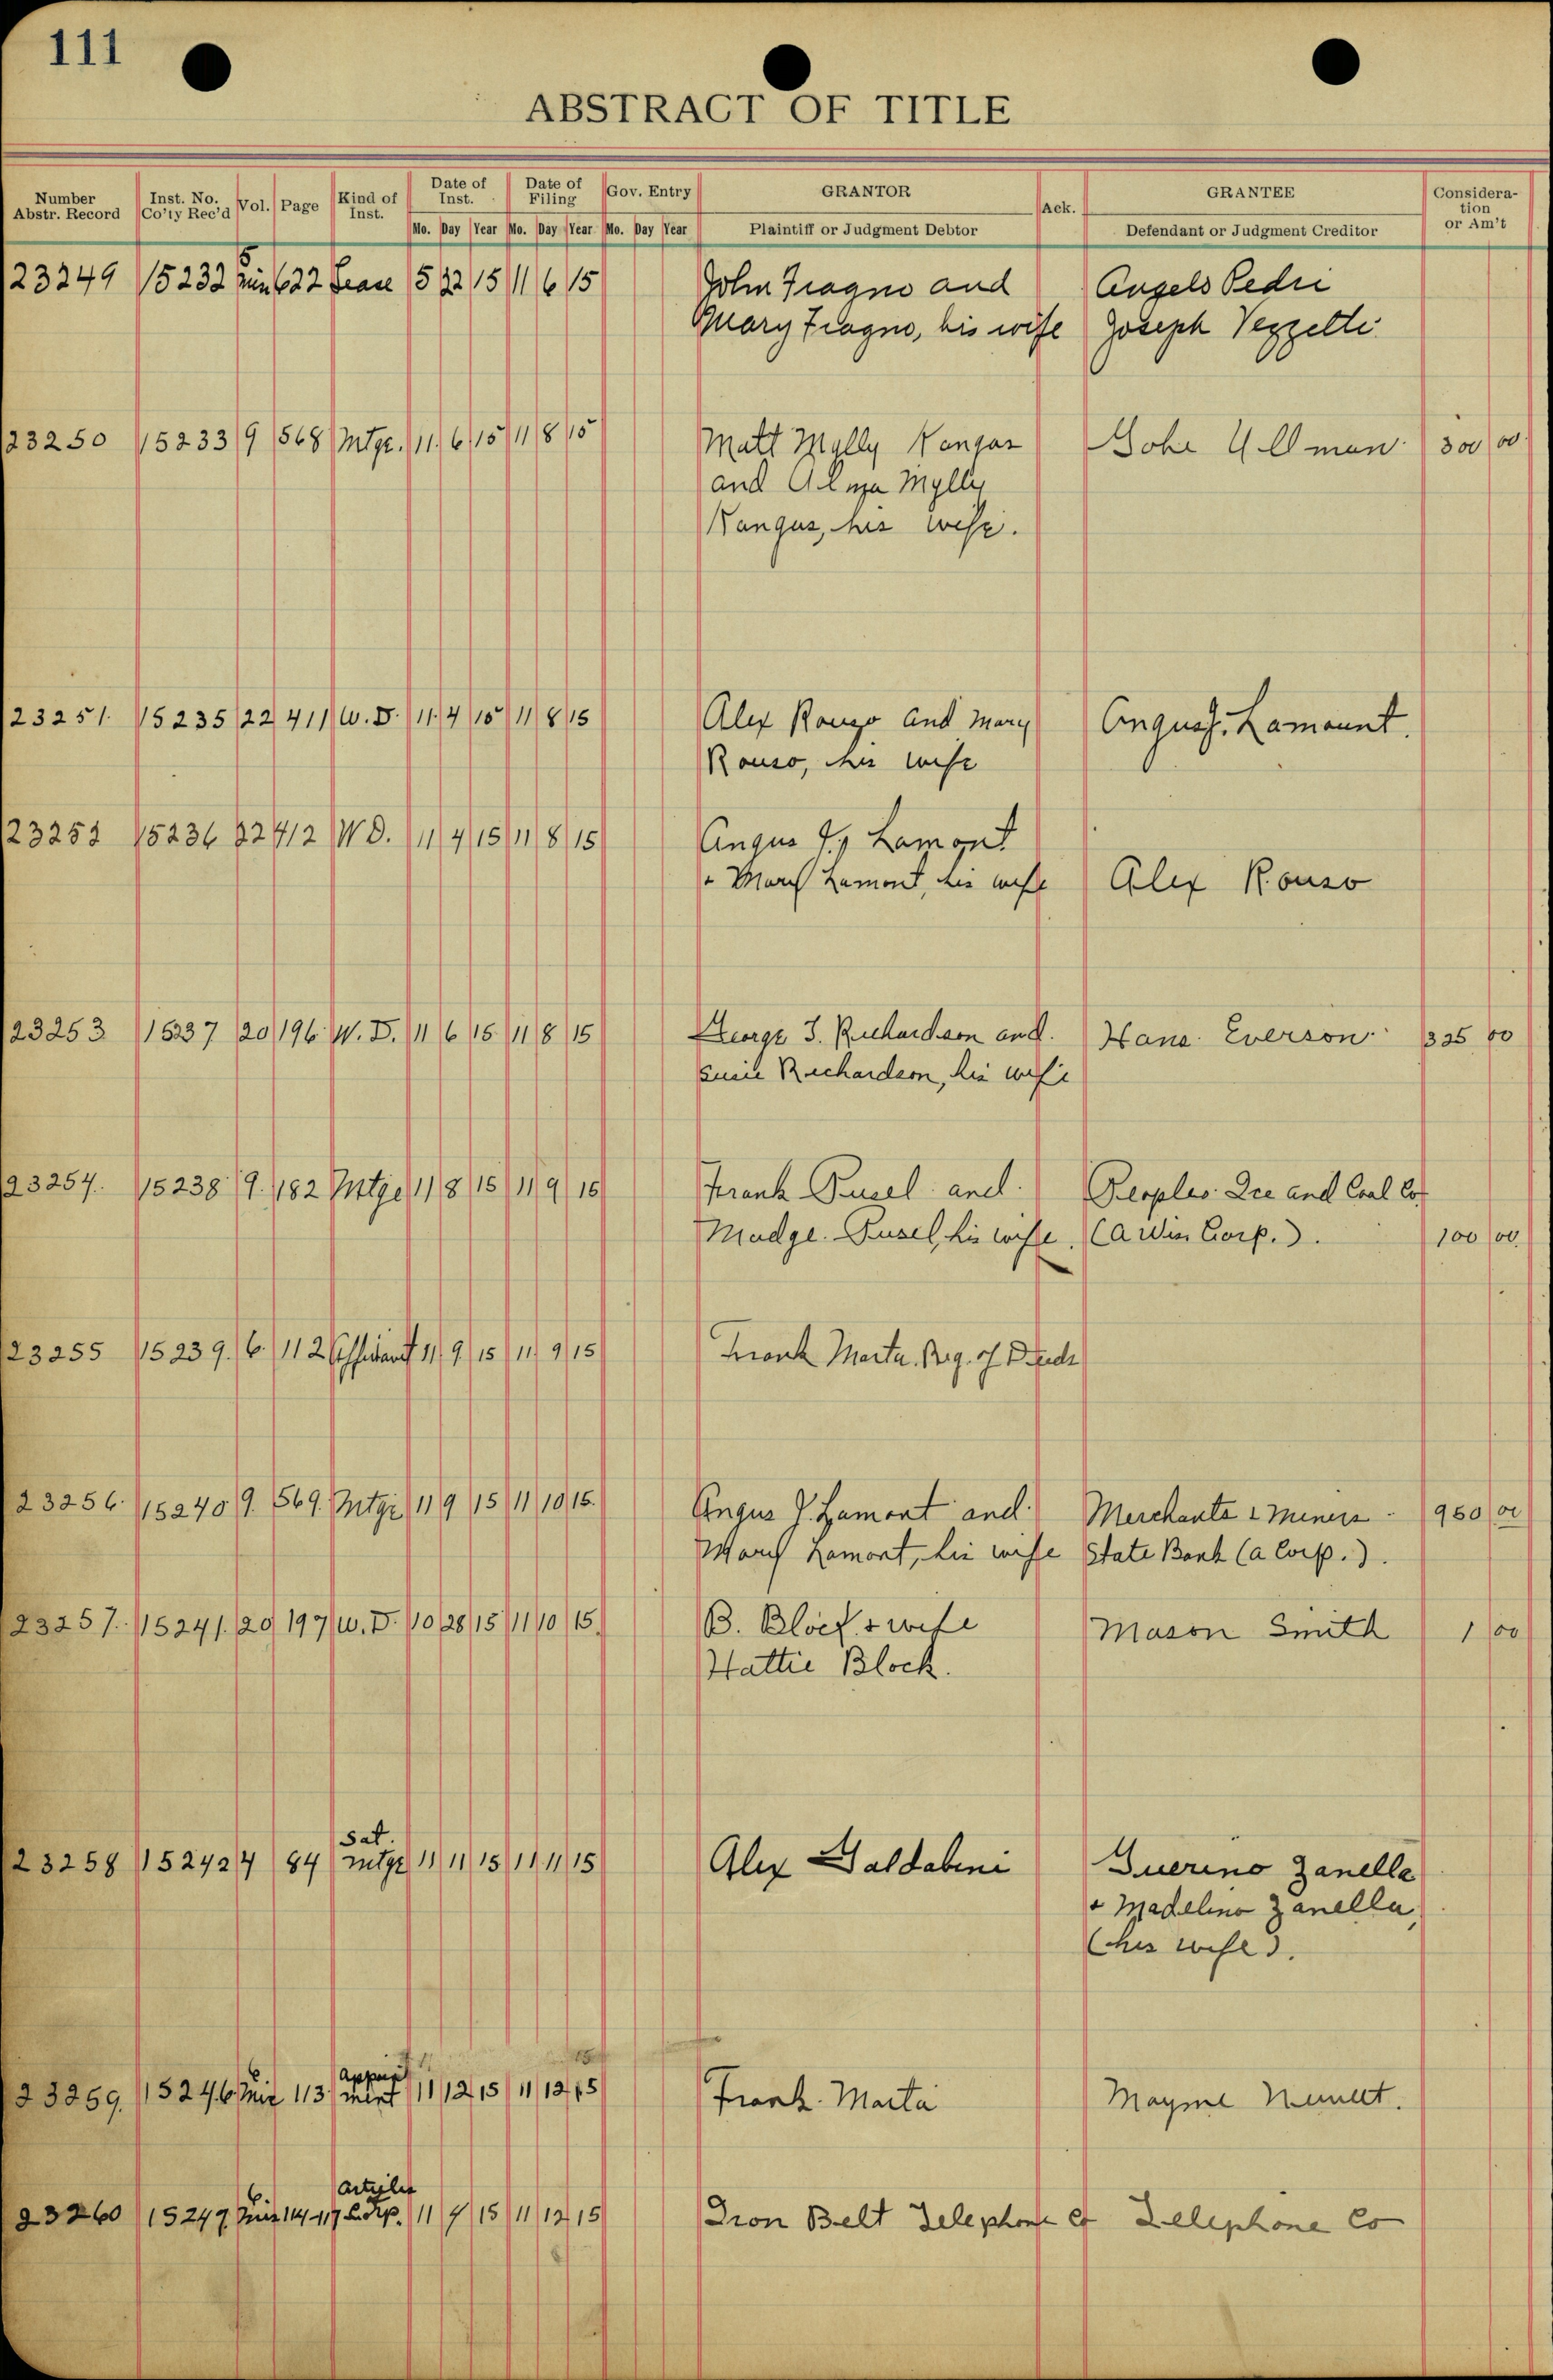 111
ABSTRACT OF TITLE
Number Abstr. Record
Inst. No. Co'ty Rec'd
Vol.
Page
Kind of Inst.
Date of Inst.
Date of Filing
Gov. Entry
GRANTOR
Ack.
GRANTEE
Consideration or Am't
Mo. Day Year Mo. Day Year Mo. Day Year
Plaintiff or Judgment Debtor
Defendant or Judgment Creditor
23249 15232 5 622 Lease 5 22 15 11 6 15 John Fragno and Angelo Pedri
Mary Fragno, his wife Joseph Vezzetti
23250 15233 9 568 Mtge. 11 6 15 11 8 15 Matt Mylly Kangas Ullman 300 00
and Mylly
Kangas, his wife.
23251 15235 22 411 W.D. 11 4 15 11 8 15 Alex Rouso and Mary Angus J. Lamount.
Rouso, his wife
23252 15236 22 412 W D. 11 4 15 11 8 15 Angus J. Lamont
+ Mary Lamont, his wife Alex Rouso
23253 15237 20 196 W.D. 11 6 15 11 8 15 George J. Richardson and Hans Everson 325 00
Susie Richardson, his wife
23254. 15238 9. 182 Mtge 11 8 15 11 9 15 Frank Pusel and Peoples Ice and Coal Co.
Madge Pusel, his wife. (a Wis Corp.). 100 00
23255 15239. 6. 112 Affidavit 11 9 15 11 9 15 Frank Marta. Reg. of Deeds
23256 15240 9. 569. Mtge 11 9 15 11 10 15. Angus J. Lamont and Merchants & Miners 950 00
Mary Lamont, his wife State Bank (a Corp.).
23257. 15241. 20 197 W.D. 10 28 15 11 10 15. B. Block & wife Mason Smith 1 00
Hattie Block.
Sat.
23258 15242 4 84 mtge 11 11 15 11 11 15 Alex Galdabini Guerino Zanella
+ Madelina Zanella,
(his wife).
Appoint
23259. 15246 6 Mis 113 ment 11 12 15 11 12 15 Frank Marta Mayme
Articles
23260 15247 6 Mis 114-117 Corp. 11 4 15 11 12 15 Iron Belt Telephone Co Telephone Co